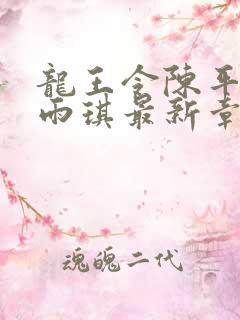 龍王令陳平
雨琪最新章
魂魄二代